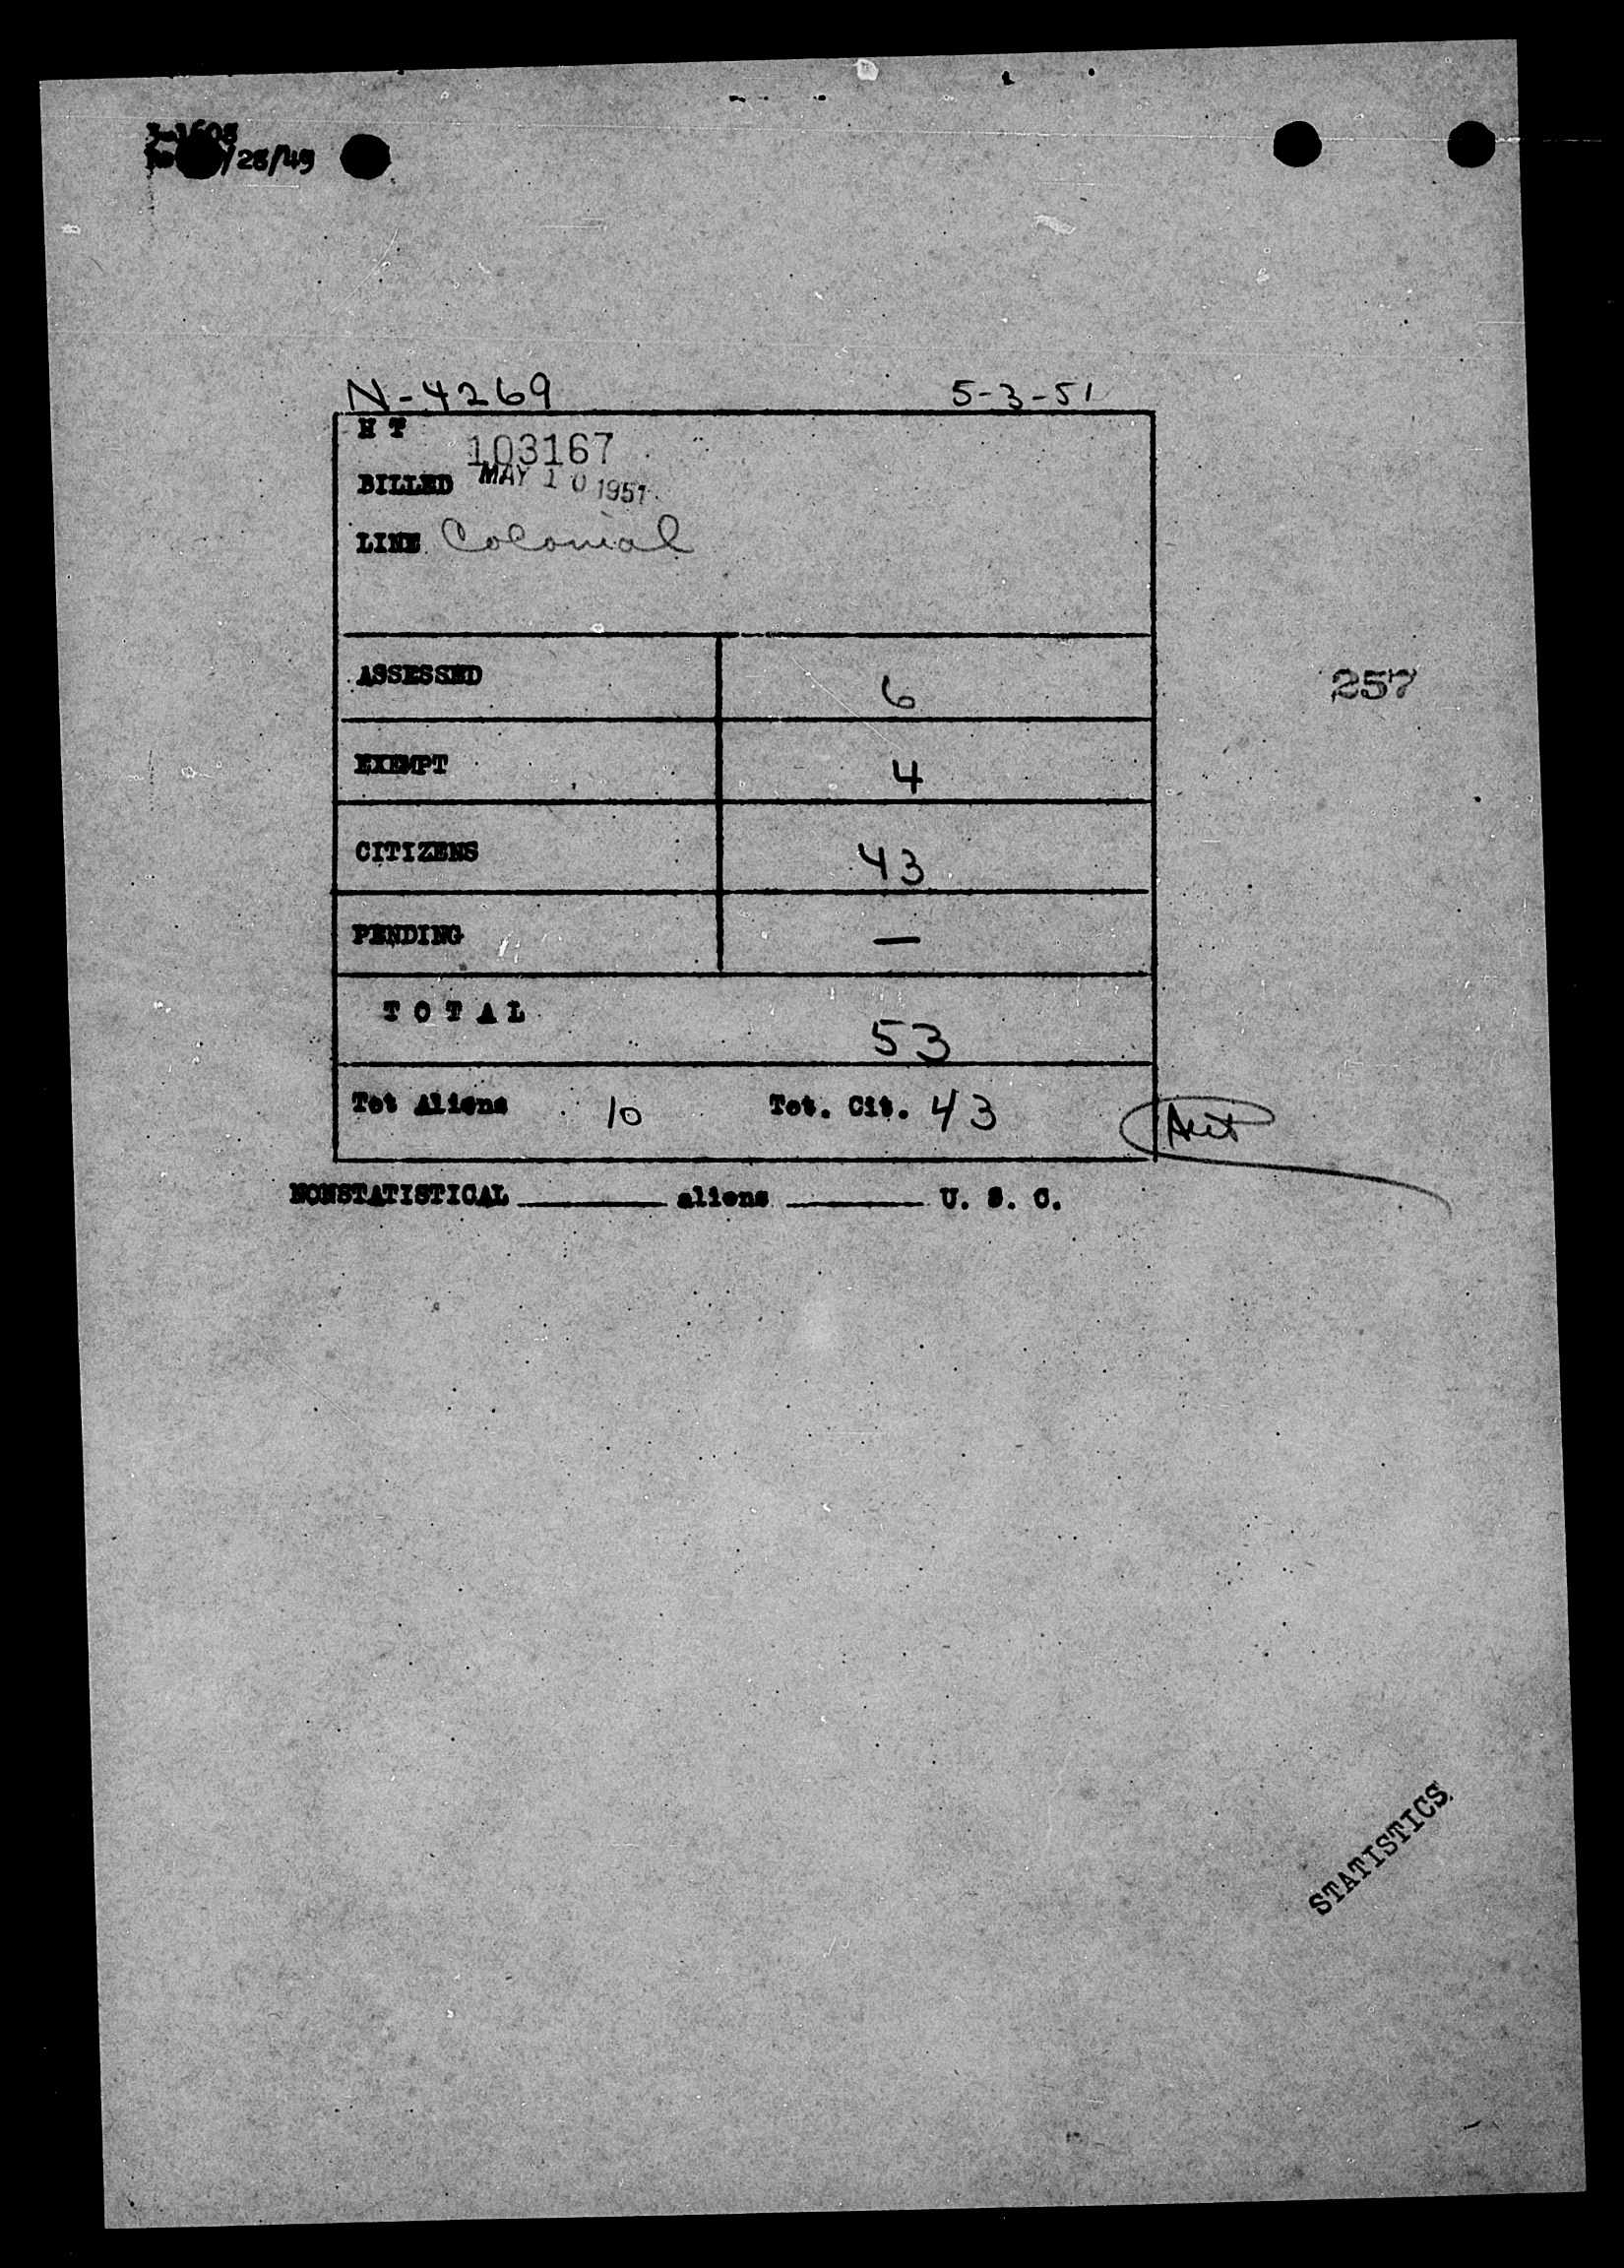 3-1608
/28/49
N-4269 5-3-51
H T 103167
BILLED MAY 10 1951
LINE Colonial
ASSESSED 6
257
EXEMPT 4
CITIZENS 43
PENDING —
TOTAL 53
Tot Aliens 10 Tot. Cit. 43
NONSTATISTICAL ________ aliens ________ U. S. C.
STATISTICS